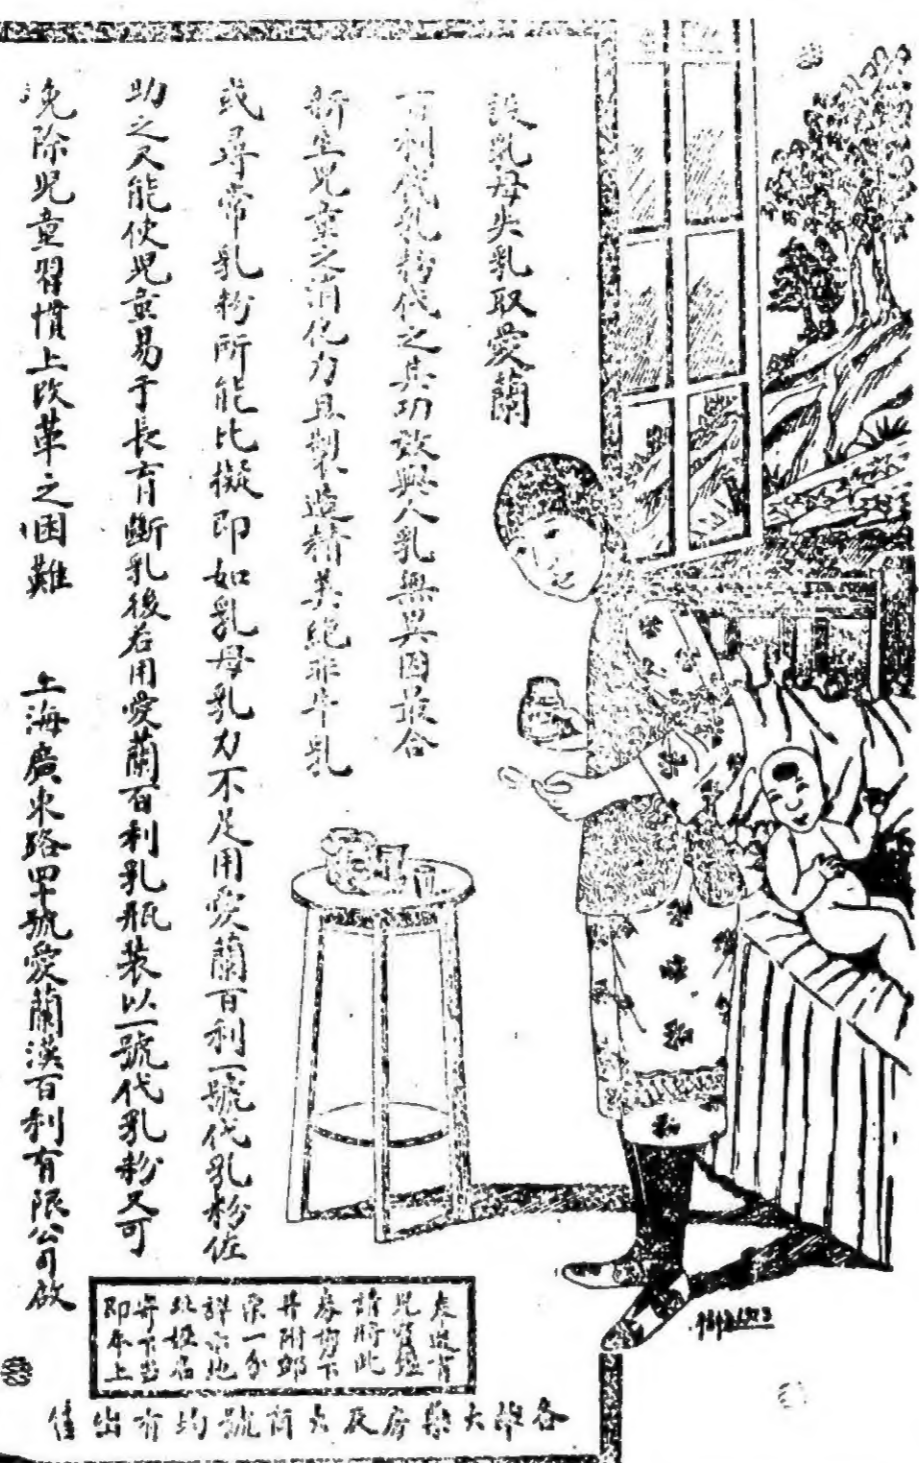 設乳母失乳取愛蘭
百利代乳粉代之其功效與人乳無異因最合
新生兒童之消化力且製造精美絕非牛乳
或尋常乳粉所能比擬即如乳母乳力不足用愛蘭百利一號代乳粉佐
助之又能使兒童易于長育斷乳後右用愛蘭百利乳瓶裝以一號代乳粉又可
免除兒童習慣上改革之困難 上海廣東路四十號愛蘭漢百利有限公司啟
請將此
券剪下
并附郵
票一分
詳示地
址姓名
寄下當
即奉上
各埠大藥房及大商號均有出售